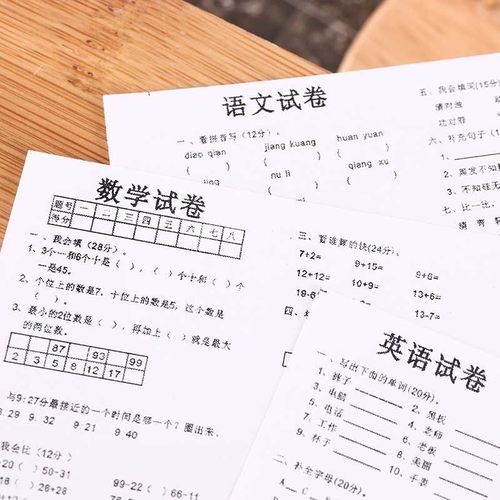 语文试卷
一、看拼音写(12分)。
diao qian
jiang kuang
huan yuan
( )
( )
( )
ning
nu li
qiang xu
( )
( )
五、我会填词(15分)
六、补充句子(
1.
2.
3.
七、比一比,
数学试卷
题号 一 二 三 四 五 六 七 八
得分
一、我会填(28分)。
1、3个一和6个十是( ),( )个十和( )个
一是45。
2、个位上的数是7,十位上的数是5,这个数是
( )。
3、最小的2位数是( ),得加上( )就是最大
的两位数。
87 93 99
2 3 5 8 12 17
与9:27分最接近的一个时间是哪一个?圈出来。
8.29 9.32 9.21 9.40
我会比(12分)
20( )50-31
99-22( )66-11
18( )26+28
三、看谁算的快(24分)。
7+2=
9+15=
9+6=
12+12=
10+9=
13+6=
19-6
13-7=
四、
英语试卷
一、写出下面的单词(20分)。
1、裤子
2、黑板
3、电脑
4、老师
5、电话
6、老板
7、工作
8、美国
9、杯子
10、手表
二、补全字母(20分)。